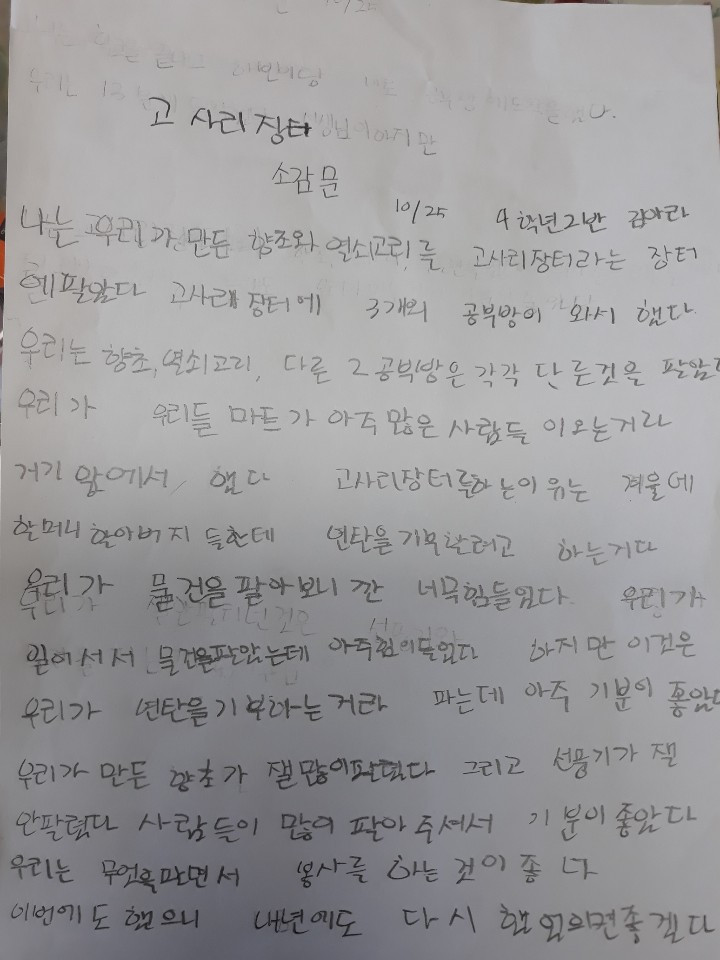 고사리장터
소감문
10/25 4학년2반 김아라
나는 우리가 만든 향초와 열쇠고리를 고사리장터라는 장터
에팔았다 고사리장터에 3개의 공부방이 와서 했다
우리는 향초, 열쇠고리, 다른 2공부방은 각각 다른것을 팔았다
우리가 우리들 마트가 아주 많은 사람들이오는거라
거기 앞에서 했다 고사리장터를하는이유는 겨울에
할머니 할아버지 들한테 연탄을기부할려고 하는거다
우리가 물건을팔아보니깐 너무힘들었다. 우리가
일어서서 물건을팔았는데 아주힘이들었다 하지만 이것은
우리가 연탄을기부하는거라 파는데 아주 기분이 좋았다
우리가 만든 향초가 잴많이팔렸다 그리고 선풍기가 잴
안팔렸다 사람들이 많이 팔아주셔서 기분이좋았다
우리는 무엇을파면서 봉사를 하는것이좋다
이번에도했으니 내년에도 다시 좋겠다